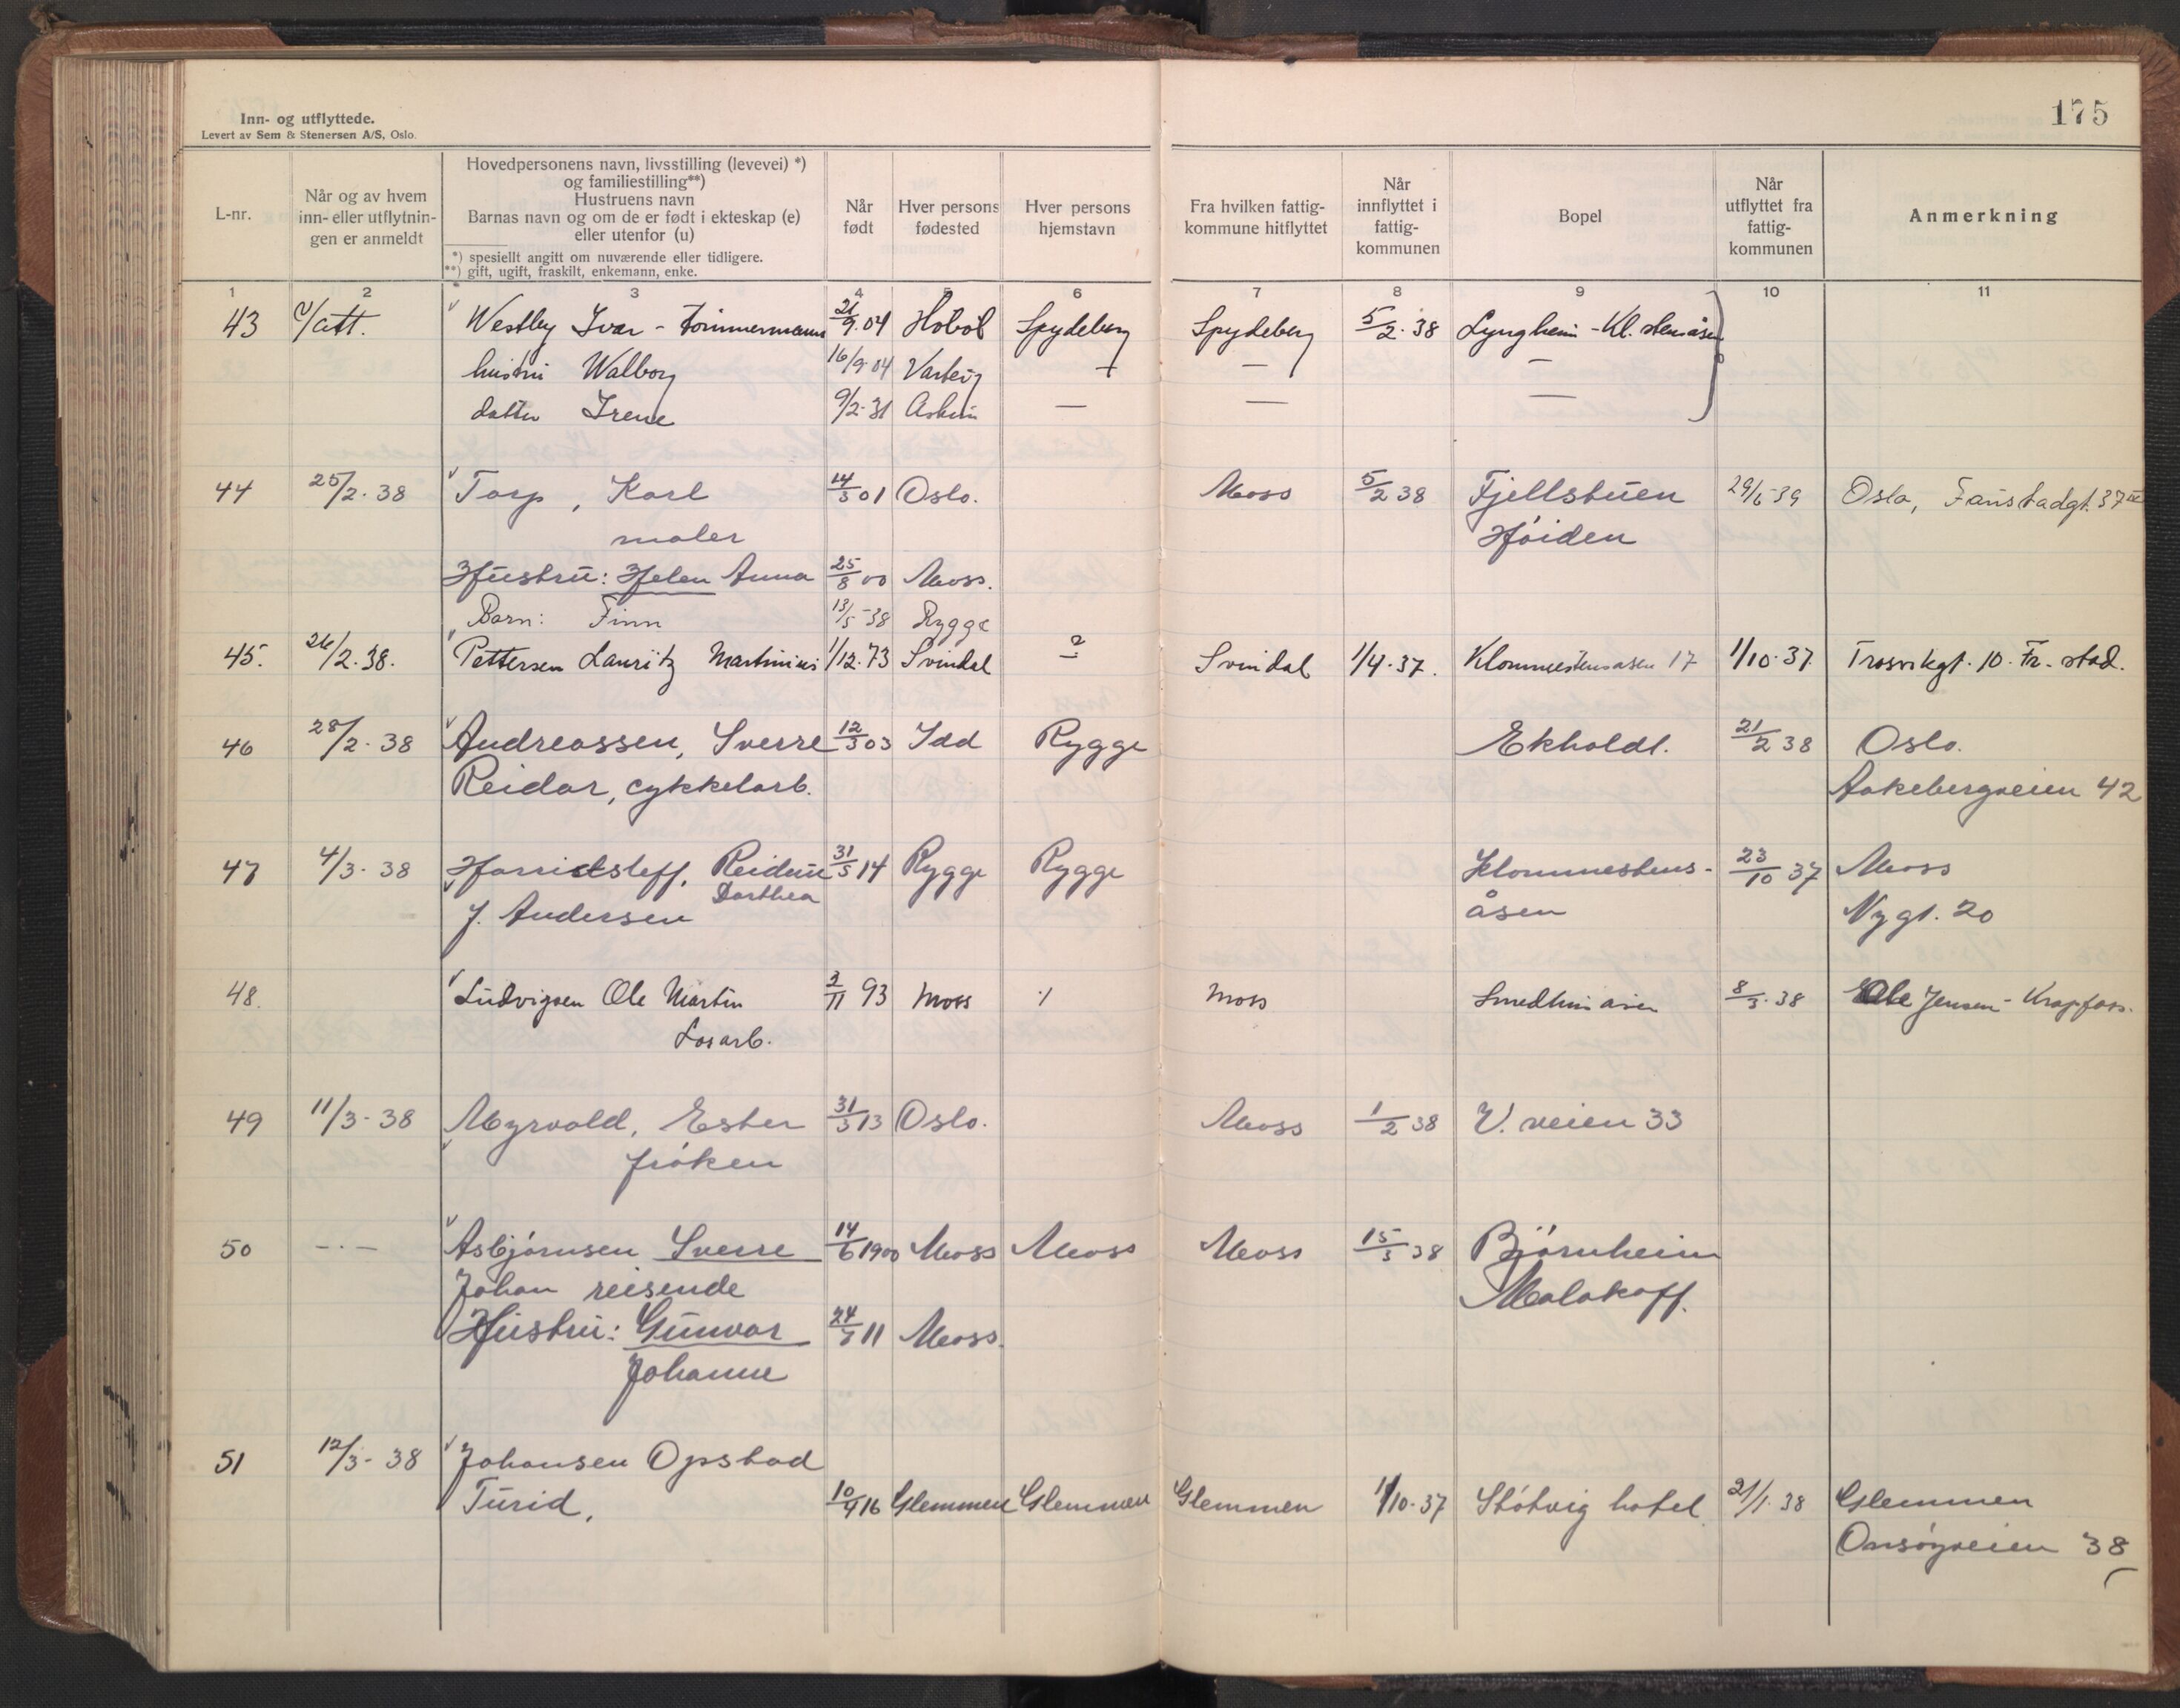 Inn- og utflyttede.
Levert av Sem & Stenersen A/S, Oslo.
175
L-nr.
Når og av hvem
inn- eller utflytnin-
gen er anmeldt
Hovedpersonens navn, livsstilling (levevei) *)
og familiestilling**)
Hustruens navn
Barnas navn og om de er født i ekteskap (e)
eller utenfor (u)
*) spesiellt angitt om nuværende eller tidligere.
**) gift, ugift, fraskilt, enkemann, enke.
Når
født
Hver persons
fødested
Hver persons
hjemstavn
Fra hvilken fattig-
kommune hitflyttet
Når
innflyttet i
fattig-
kommunen
Bopel
Når
utflyttet fra
fattig-
kommunen
Anmerkning
1 2 3 4 5 6 7 8 9 10 11
43 Westby Ivar - tømmermann 21/9.04 Hobøl Spydeberg Spydeberg 5/2.38 Lyngheim - Kl. stensåsen
hustru Walborg 16/9.04 Varteig — — —
datter Irene 9/2.31 Askim — — —
44 25/2.38 Torp, Karl 14/3 01 Oslo. Moss 5/2 38 Fjellstuen 29/6 39 Oslo, Faustadgt. 37 III
maler Høiden
Hustru: Helen Anna 25/8 00 Moss.
Barn: Finn 13/5-38 Rygge
45. 26/2.38. Pettersen Lauritz Martinius 1/12.73 Svindal ? Svindal 1/4.37. Klommestensåsen 17 1/10.37. Trosvikgt. 10. Fr.stad.
46 28/2.38 Andreassen, Sverre 12/3 03 Idd Rygge Ekholdt. 21/2 38 Oslo.
Reidar, cykkelarb. Aakebergveien 42
47 4/3-38 Harridsleff, Reidun 31/5 14 Rygge Rygge Klommestens- 23/10 37 Moss
Dorthea
f. Andersen åsen Nygt. 20
48. Ludvigsen Ole Martin 3/11 93 Moss ./ Moss 8/3.38 Ole Jensen - Krapfoss.
Løsarb.
49 11/3-38 Myrvold, Ester 31/3 13 Oslo. Moss 1/2 38 V. veien 33
frøken
50 -.- Asbjørnsen Sverre 14/6 1900 Moss Moss Moss 15/3 38 Bjørnheim
Johan reisende Malakoff.
Hustru: Gunvor 24/7 11 Moss.
Johanne
51 12/3-38 Johansen Opstad
Turid, 10/9 16 Glemmen Glemmen Glemmen 1/10.37 Støtvig hotel 21/1.38 Glemmen
Onsøyveien 38